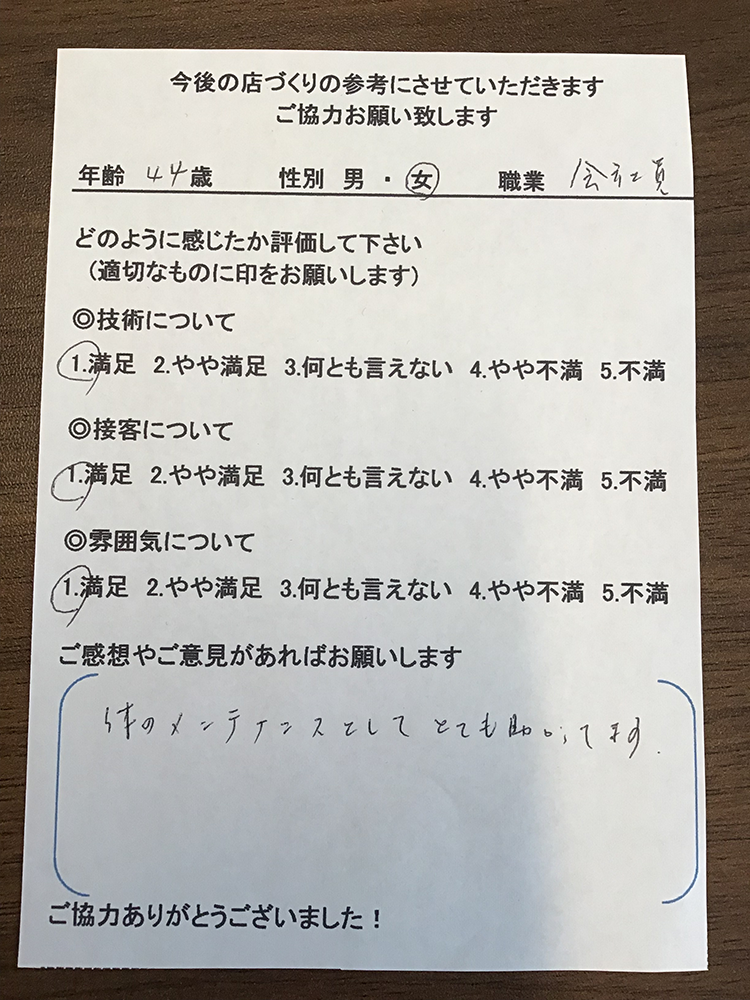 今後の店づくりの参考にさせていただきます
ご協力お願い致します
年齢 44歳 性別 男 ・ 女 職業 会社員
どのように感じたか評価して下さい
（適切なものに印をお願いします）
◎技術について
1.満足 2.やや満足 3.何とも言えない 4.やや不満 5.不満
◎接客について
1.満足 2.やや満足 3.何とも言えない 4.やや不満 5.不満
◎雰囲気について
1.満足 2.やや満足 3.何とも言えない 4.やや不満 5.不満
ご感想やご意見があればお願いします
体のメンテナンスとして とても助かってます.
ご協力ありがとうございました！